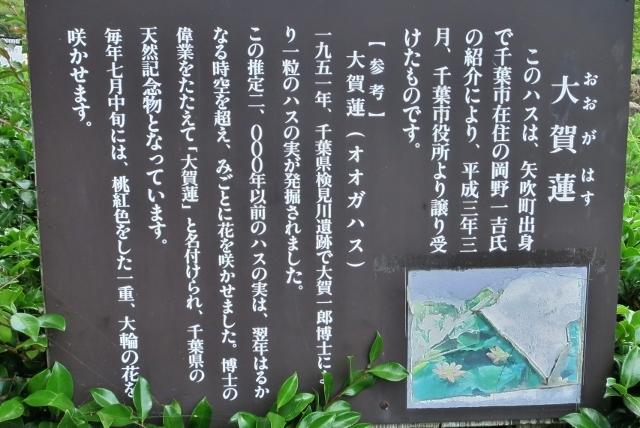 おおがはす
大賀蓮
このハスは、矢吹町出身
で千葉市在住の岡野一吉氏
の紹介により、平成三年三
月、千葉市役所より譲り受
けたものです。
【参考】
大賀蓮(オオガハス)
一九五一年、千葉県検見川遺跡で大賀一郎博士によ
り一粒のハスの実が発掘されました。
この推定二、〇〇〇年以前のハスの実は、翌年はるか
なる時空を超え、みごとに花を咲かせました。博士の
偉業をたたえて「大賀蓮」と名付けられ、千葉県の
天然記念物となっています。
毎年七月中旬には、桃紅色をした一重、大輪の花を
咲かせます。